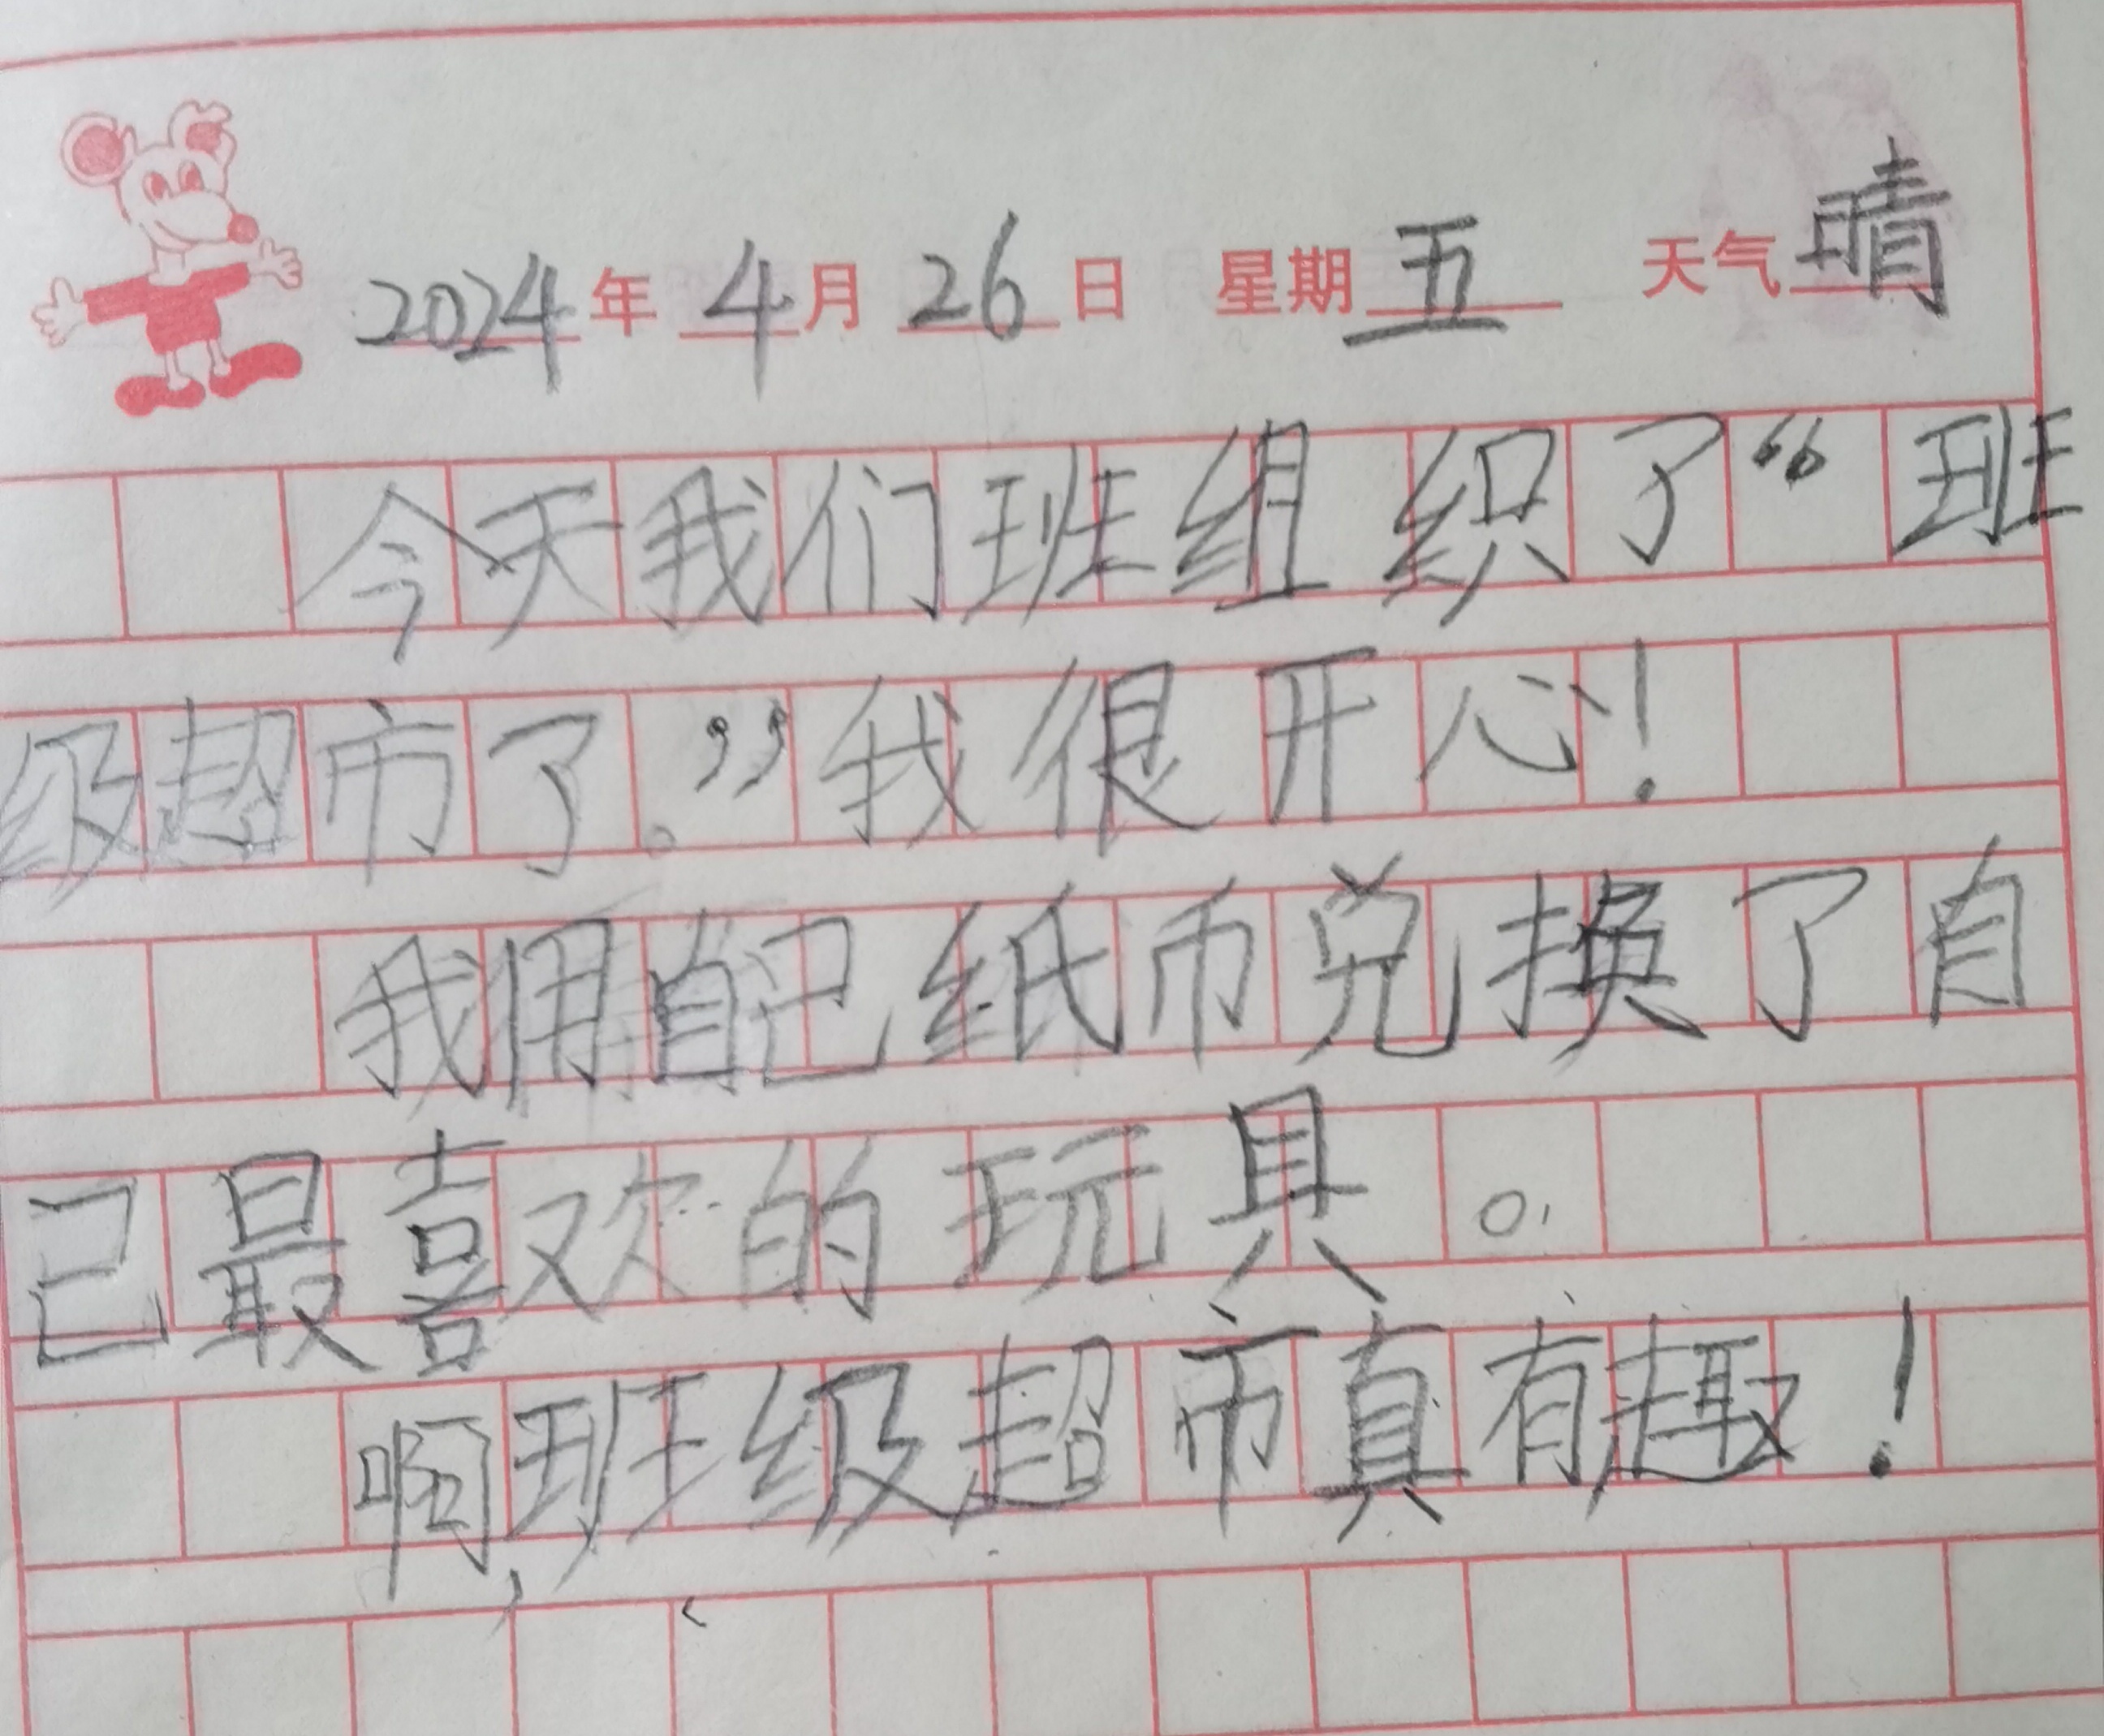 2024年 4月 26日 星期五 天气晴
今天我们班组织了“班
级超市了。”我很开心！
我用自己纸币兑换了自
己最喜欢的玩具。
啊，班级超市真有趣！